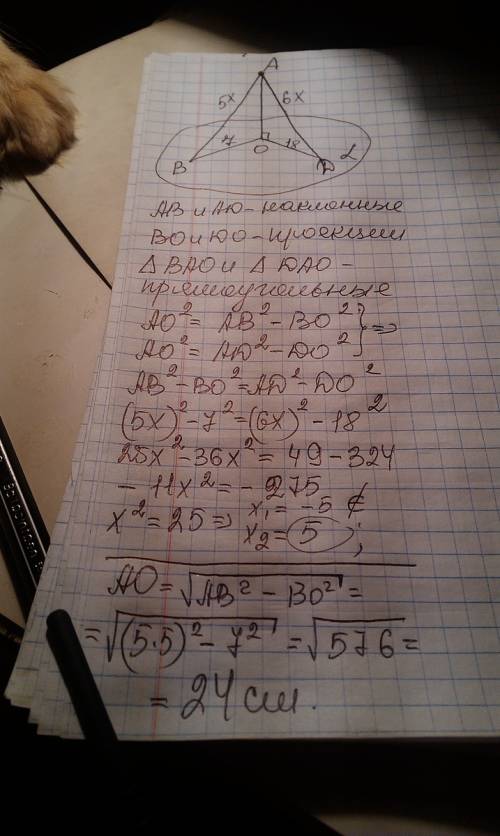 A
5x 6x
7 18
B O D L
AB и AD - наклонные
BO и DO - проекции
Δ BAO и Δ DAO -
прямоугольные
AO² = AB² - BO² } =>
AO² = AD² - DO²
AB² - BO² = AD² - DO²
(5x)² - 7² = (6x)² - 18²
25x² - 36x² = 49 - 324
- 11x² = - 275
x² = 25 => x₁ = -5 ∉
x₂ = 5 ;
AO = √AB² - BO² =
= √(5·5)² - 7² = √576 =
= 24 см.